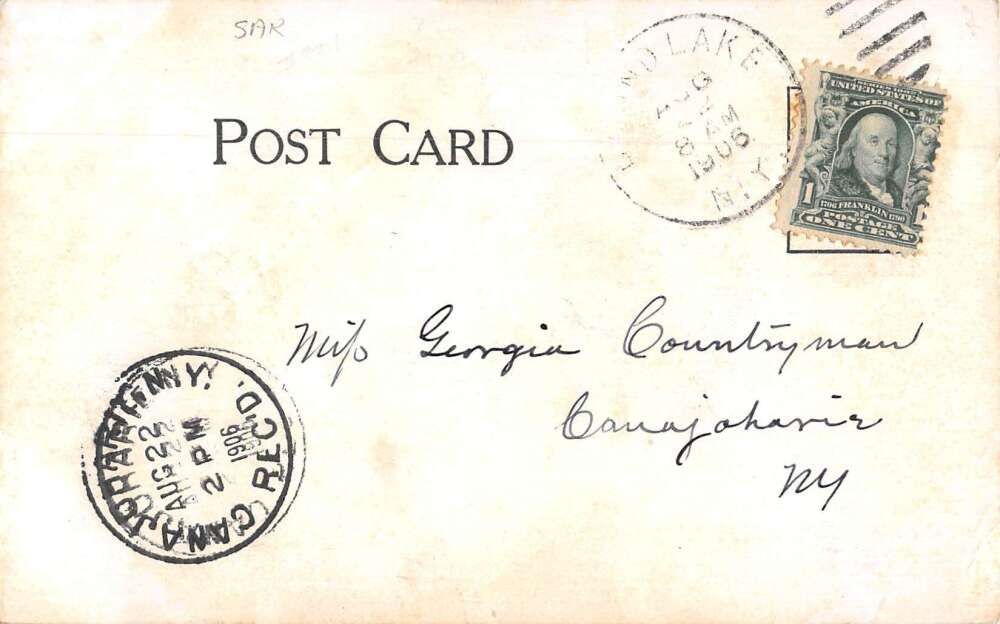 SAR
LAKE
8 AM
1906
N.Y.
POST CARD
SERIES 1902
UNITED STATES OF
AMERICA
1
1706 FRANKLIN 1790
POSTAGE
ONE CENT
Miss Georgia Countryman
Canajoharie
NY
CANAJOHARIE N.Y.
AUG 22
2 PM
1906
REC'D.